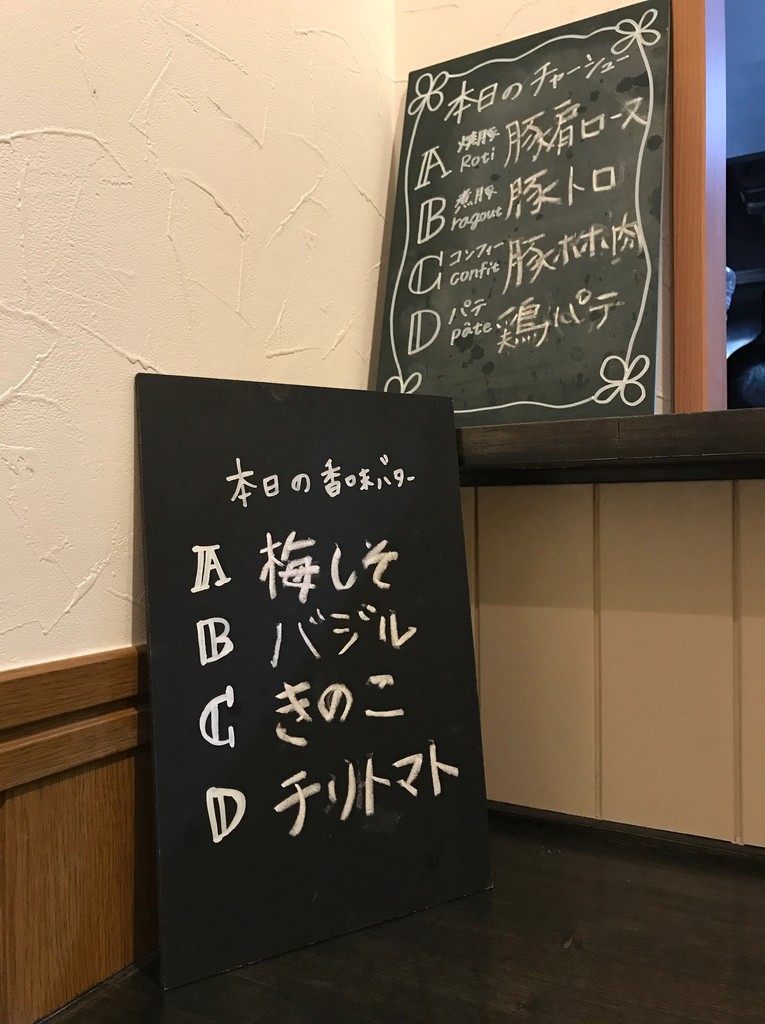 本日のチャーシュー
A 焼豚 Roti 豚肩ロース
B 煮豚 ragout 豚トロ
C コンフィー confit 豚ホホ肉
D パテ pâte 鶏パテ
本日の香味バター
A 梅しそ
B バジル
C きのこ
D チリトマト